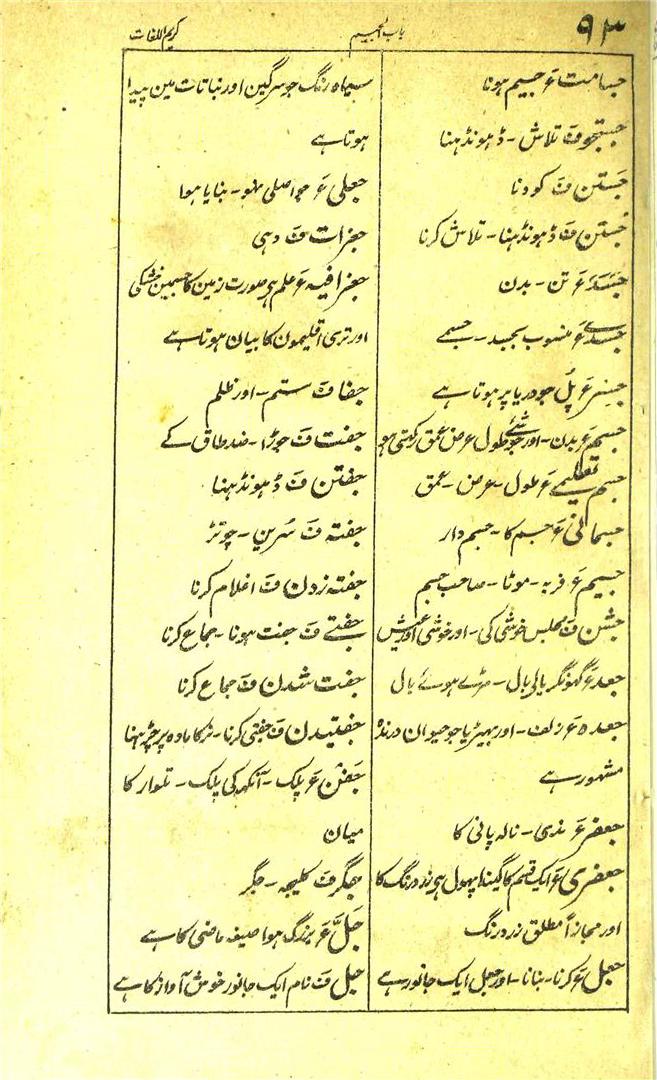 ۹۳
باب الجیم
کریم اللغات
جسامت ع جسیم ہونا
جستجو ف تلاش - ڈہونڈہنا
جَستن ف کودنا
جُستن ف ڈہونڈہنا - تلاش کرنا
جَسَد ع تن - بدن
جسدے ع منسوب بجسد - جسمے
جِسْر ع پُل جو دریا پر ہوتا ہے
جسم ع بدن - اور جو شے طول عرض عمق رکہتی ہو
جسم تعلیمے ع طول - عرض - عمق
جسمانی ع جسم کا - جسم دار
جسیم ع فربہ - موٹا - صاحب جسم
جشن ف مجلس خوشی کی - اور خوشی اور عیش
جعد ع گہونگریالی بال - مڑے ہوئے بال
جعدہ ع زلف - اور بہیڑیا جو حیوان درندہ
مشہور ہے
جعفر ع ندی - نالہ پانی کا
جعفری ع ایک قسم کا گیندا پہول ہی زرد رنگ کا
اور مجازاً مطلق زرد رنگ
جعل ع کرنا - بنانا - اور جعل ایک جانور ہے
سیاہ رنگ جو سرگین اور نباتات مین پیدا
ہوتا ہے
جعلی ع جو اصلی نہو - بنایا ہوا
جغرات ف دہی
جغرافیہ ع علم ہی صورت زمین کا جسمین خشکی
اور تری اقلیمون کا بیان ہوتا ہے
جفا ف ستم - اور ظلم
جفت ف جوڑا - ضد طاق کے
جفتن ف ڈہونڈہنا
جفتہ ف سُرین - چوتڑ
جفتہ زدن ف اغلام کرنا
جفتے ف جفت ہونا - جماع کرنا
جفت شدن ف جماع کرنا
جفتیدن ف جفتی کرنا - نر کا مادہ پر چڑہنا
جَفن ع پلک - آنکہہ کی پلک - تلوار کا
میان
جگر ف کلیجہ - جگر
جَلَّ ع بزرگ ہوا صیغہ ماضی کا ہے
جل ف نام ایک جانور خوش آواز کا ہے